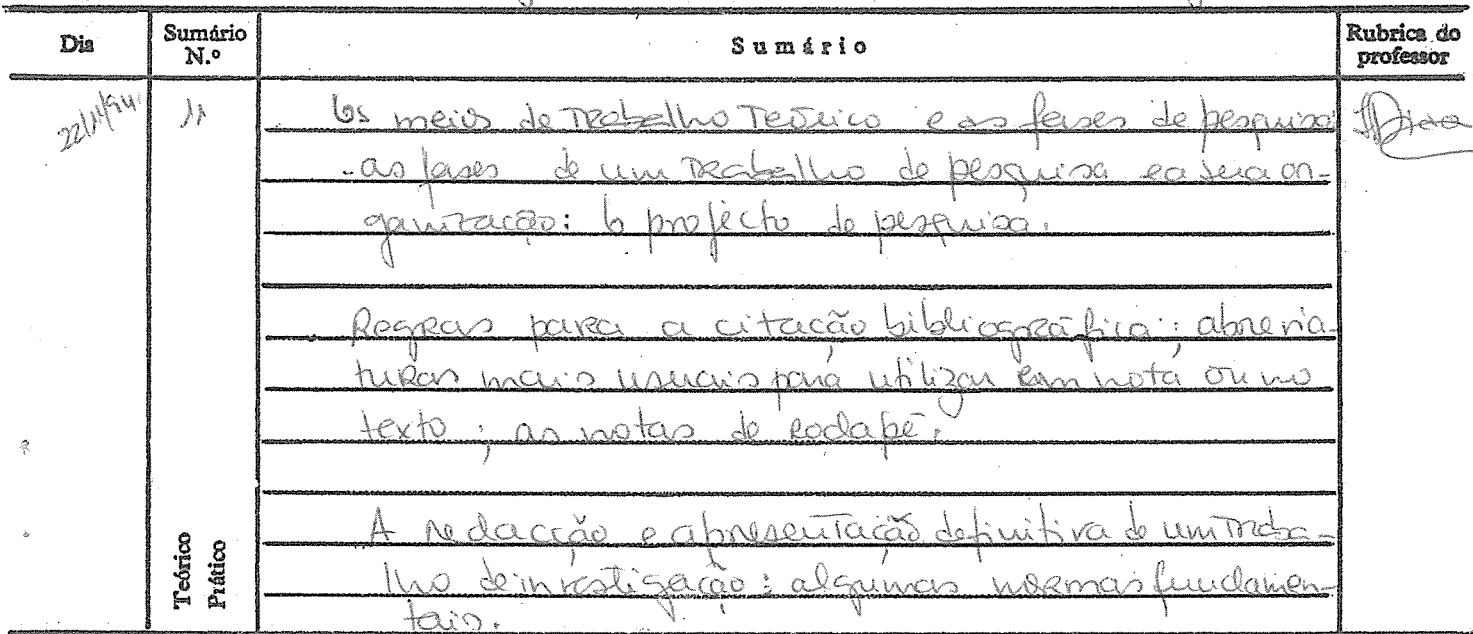 Dia
Sumário N.º
Sumário
Rubrica do professor
22/11/94
11
Os meios de Trabalho Teórico e as fases de pesquisa
as fases de um trabalho de pesquisa e a sua or-
ganização: O projecto de pesquisa.
Regras para a citação bibliográfica: abrevia-
turas mais usuais para utilizar em nota ou no
texto; as notas de rodapé.
A redacção e apresentação definitiva de um traba-
lho de investigação: algumas normas fundamen-
tais.
Teórico
Prático